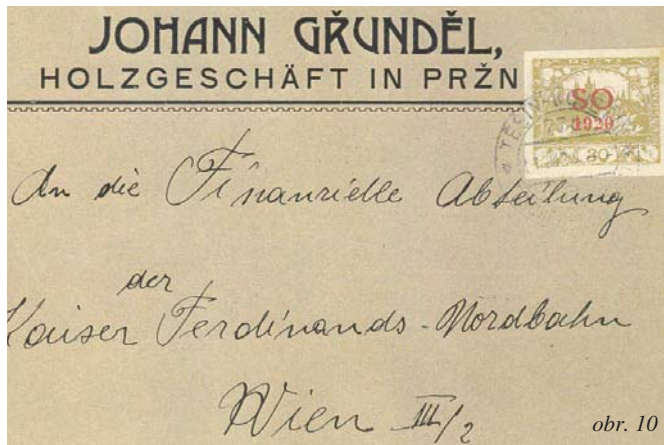 JOHANN GŘUNDĚL,
HOLZGESCHÄFT IN PRŽN
SO
1920
30
An die Finanzielle Abteilung
der
Kaiser Ferdinands-Nordbahn
Wien III/2
obr. 10